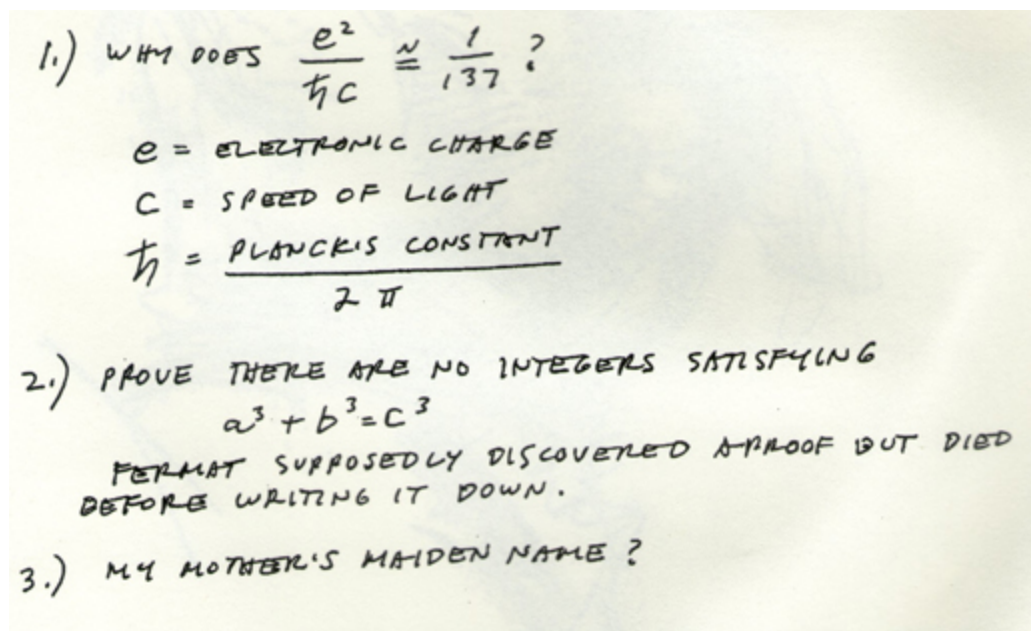 1.) WHY DOES e²/ℏc ≅ 1/137 ?
e = ELECTRONIC CHARGE
C = SPEED OF LIGHT
ℏ = PLANCK'S CONSTANT / 2π
2.) PROVE THERE ARE NO INTEGERS SATISFYING
a³ + b³ = c³
FERMAT SUPPOSEDLY DISCOVERED A PROOF BUT DIED
BEFORE WRITING IT DOWN.
3.) MY MOTHER'S MAIDEN NAME ?